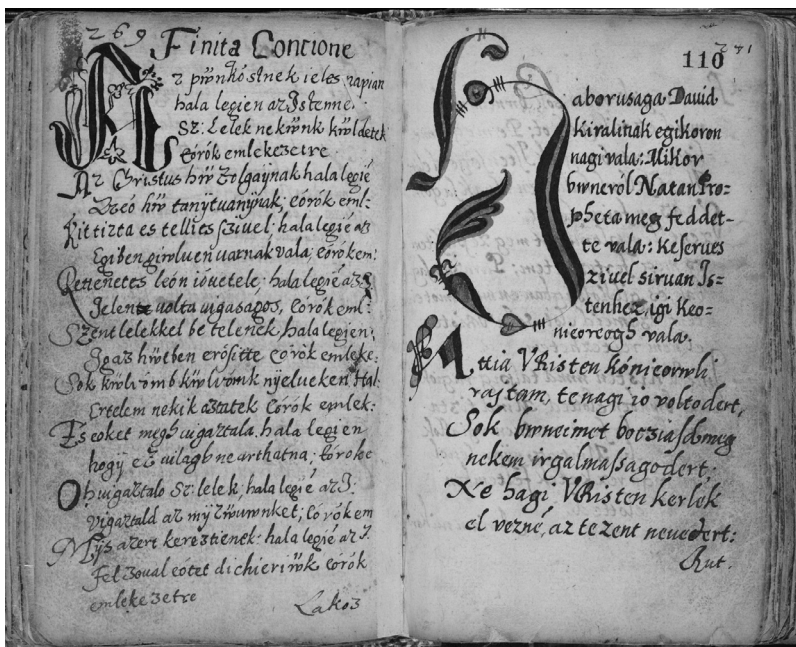 269 Finita Concione
Az pẅnkòstnek ieles napian
hala legien az Istenne.
Sz: Lelek nekẅnk kẅldetek
Eòròk emlekezetre
Az Christus hẅ zolgaÿnak hala legiē
eòròk eml:
Kit tizta es tellies sziuel; hala legiē az
Egiben giwluen uarnak vala, eòròkem:
leòn iòuetele; hala legiē az
Jelen volta uigasagos, Eòròk eml:
Szent lelekkel be telenek, hala legien;
Igaz hẅtben eròsitte eòròk emleke:
Sok
Ertelem nekik adatek Eòròk emlek:
Es eoket megh uigaztala, hala legien
hogÿ ez uilagb ne arthatna; Eòròke
Oh uigaztalo Sz: lelek; hala legiē az I:
uigaztald az mÿ eòròkem
Mÿs azert kereztienek: hala legiē az I.
Fel zoual eotet dichieriẅk eòròk
emlekezetre
Lakoz
110 271
aborusaga Dauid
Kiralinak egikoron
nagi vala: Mikor
bwneròl Natan Pro=
pheta meg feddet-
te vala: Keserues
ziuel siruan Is=
tenhez, igi Keo=
nieoreogh vala.
Attia VRisten kónieorwli
rajtam, te nagi io voltodert,
Sok bwneimet botziasdmeg
nekem irgalmassagodert;
Ne hagi VRisten kerlek
el vezné, az te zent neuedert:
Rut.